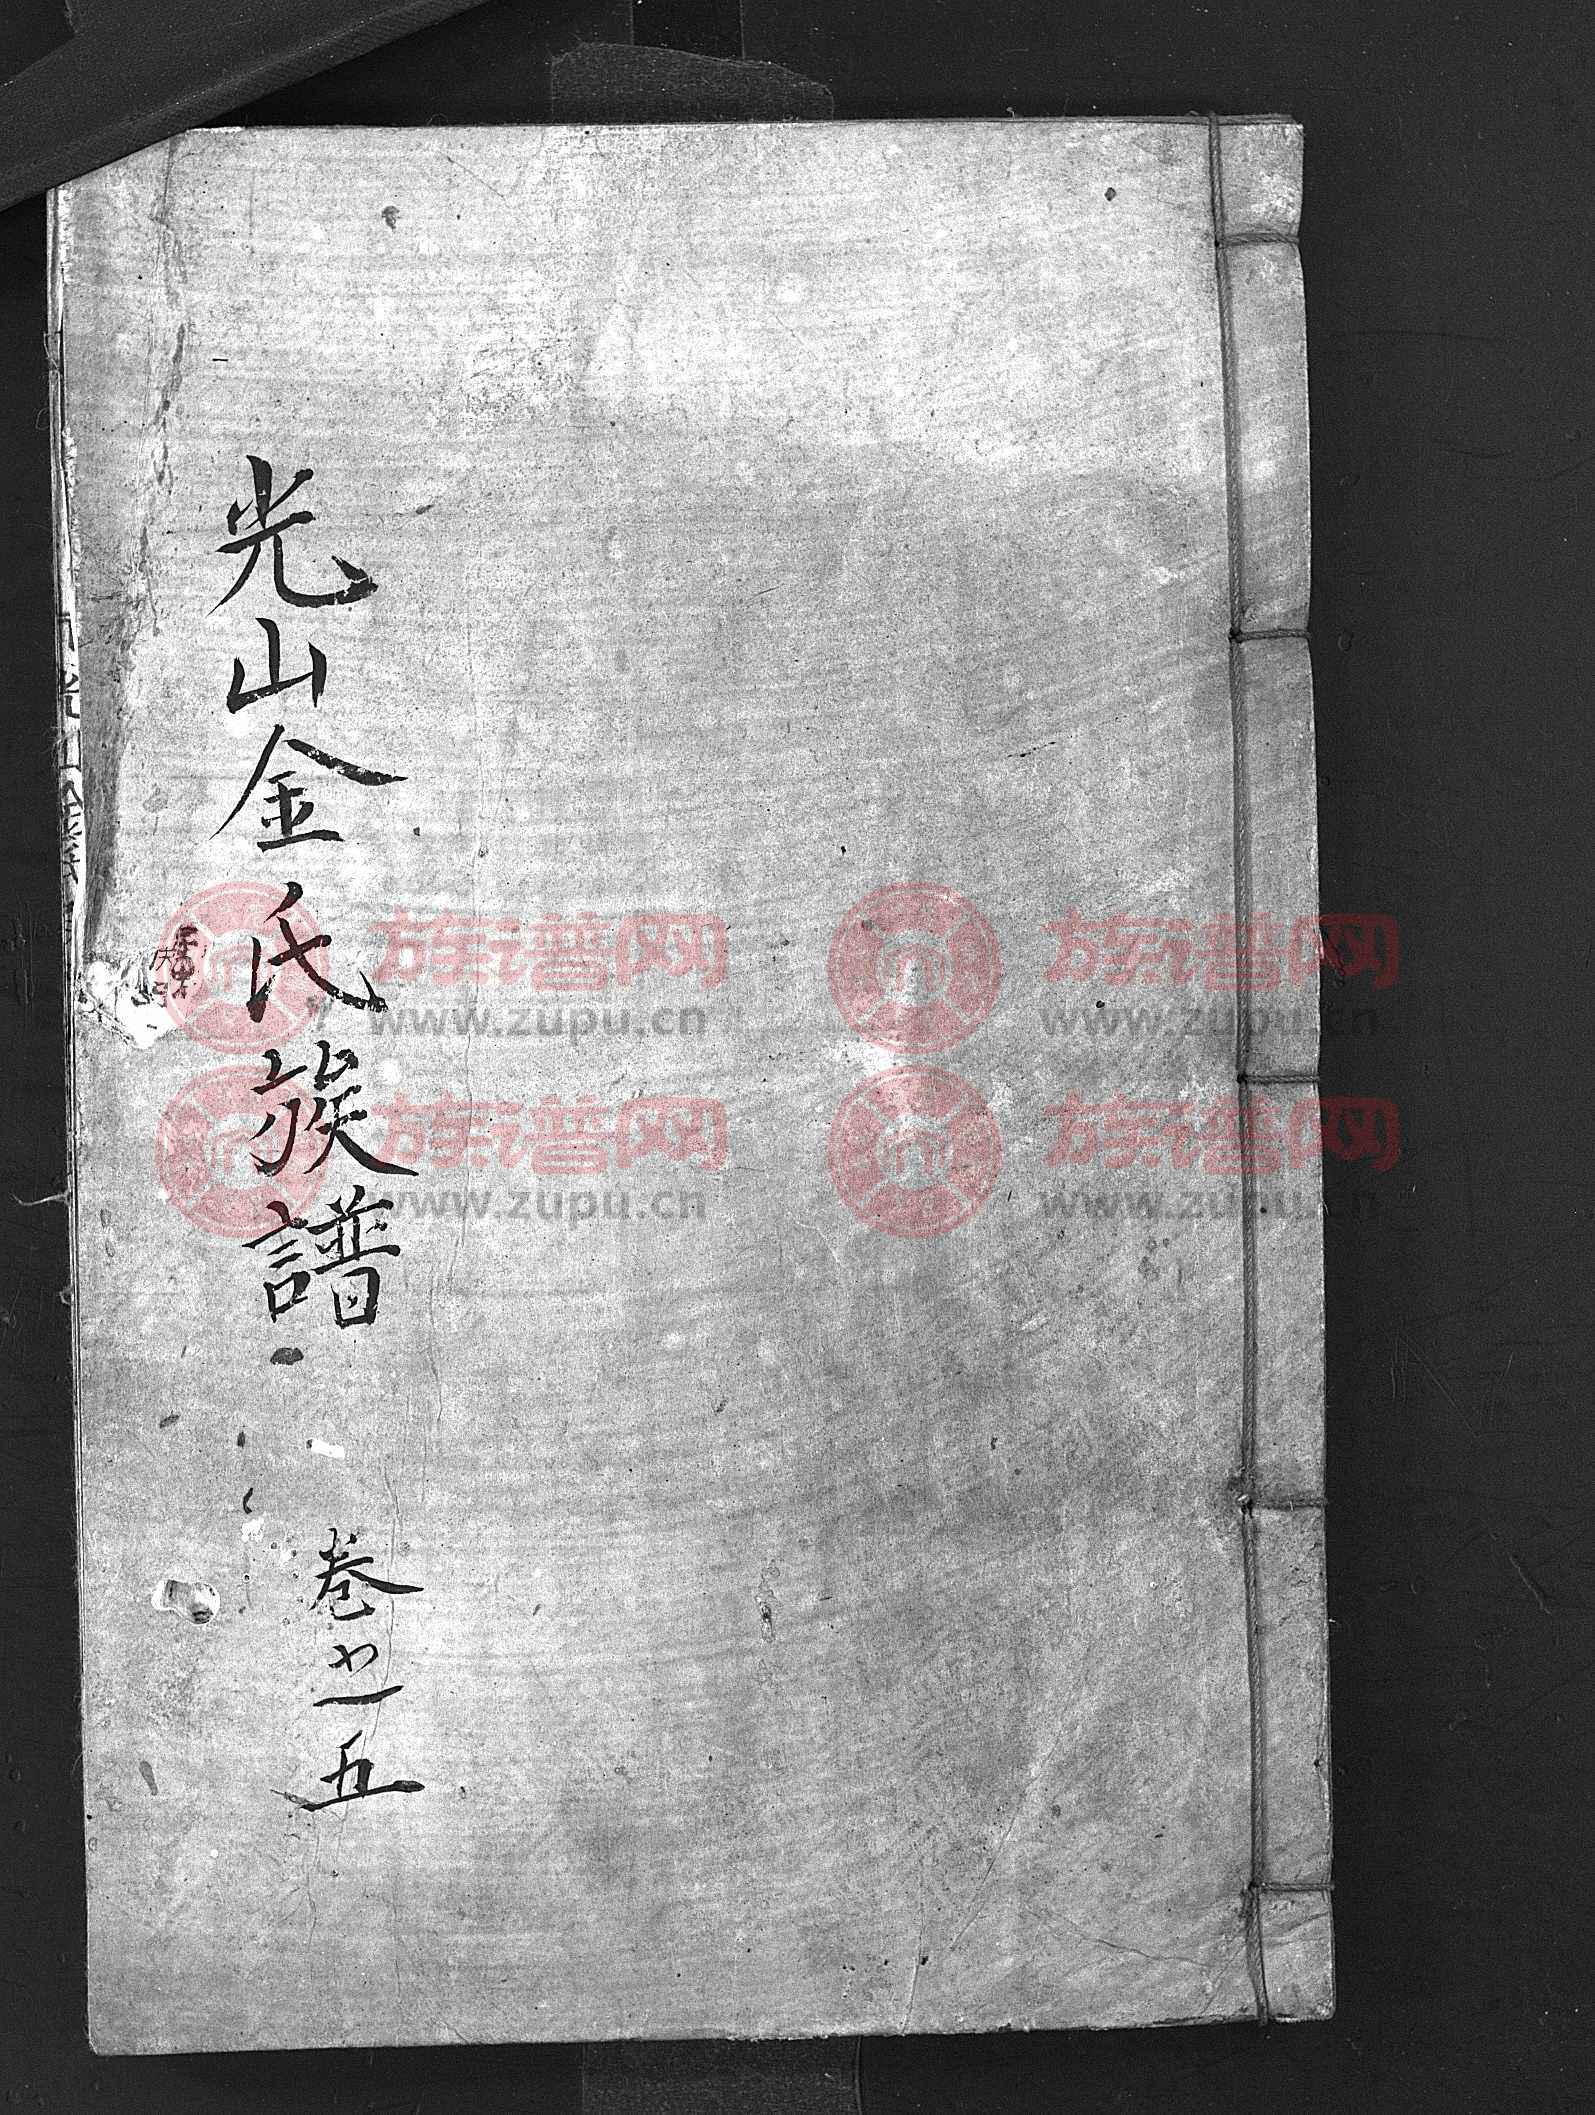 光山金氏族譜
卷之五
族谱网
www.zupu.cn
族谱网
www.zupu.cn
族谱网
www.zupu.cn
族谱网
www.zupu.cn